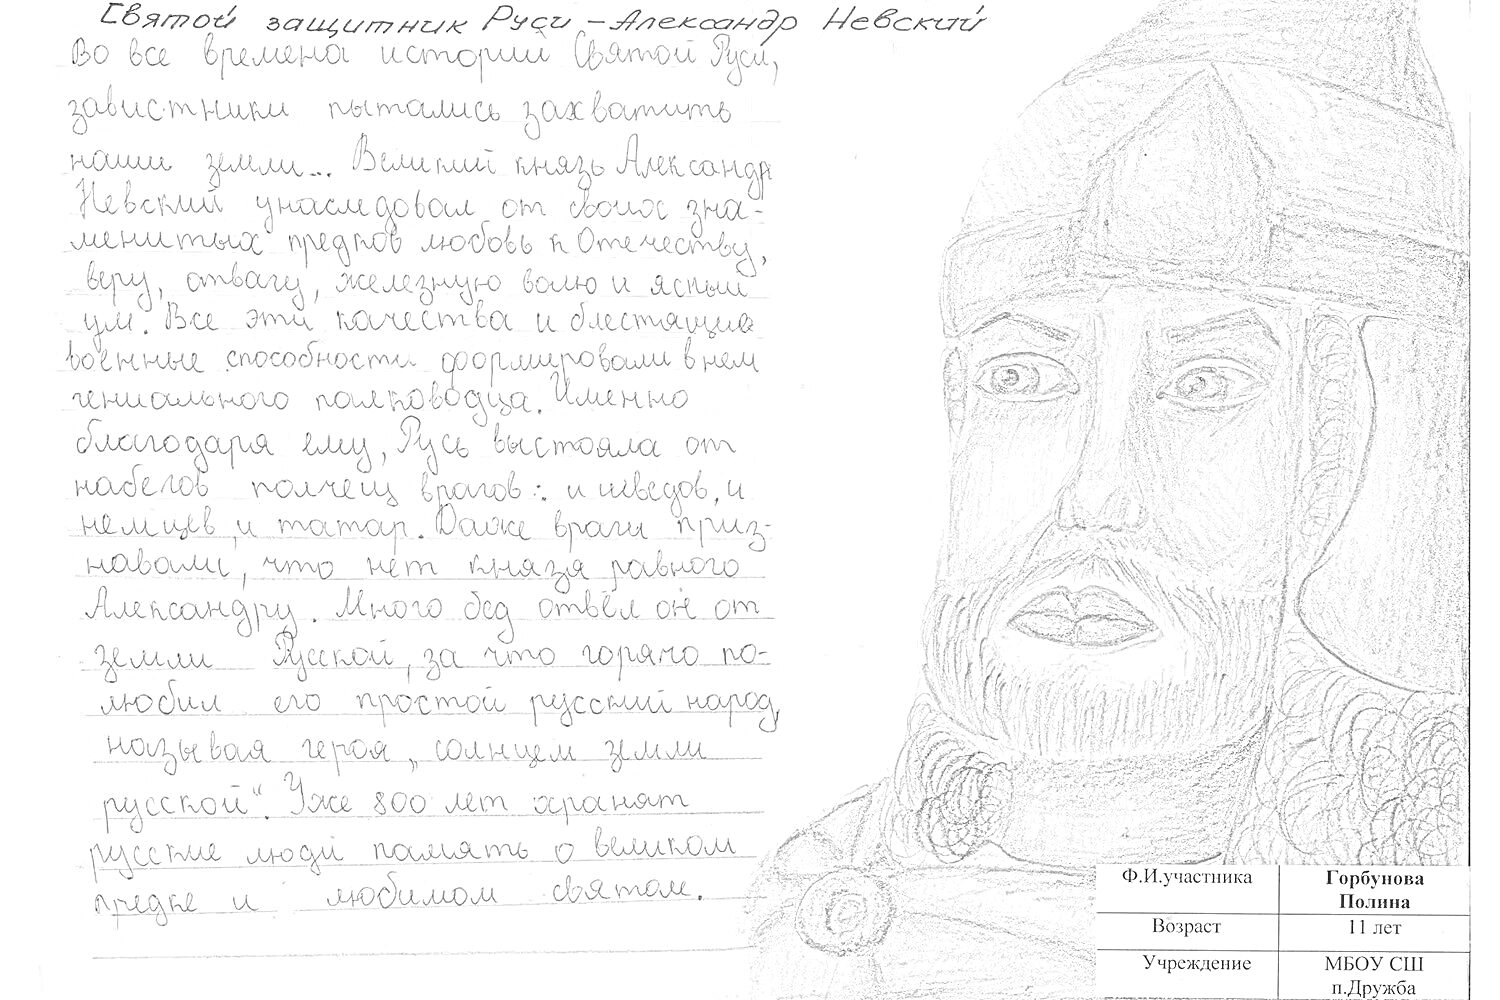 Святой защитник Руси – Александр Невский
Во все времена истории Святой Руси,
завистники пытались захватить
наши земли... Великий князь Александр
Невский унаследовал от своих зна-
менитых предков любовь к Отечеству,
веру, отвагу, железную волю и ясный
ум. Все эти качества и блестящие
военные способности сформировали в нем
гениального полководца. Именно
благодаря ему, Русь выстояла от
набегов полчищ врагов: и шведов, и
немцев, и татар. Даже враги приз-
навали, что нет князя равного
Александру. Много бед отвёл он от
земли Русской, за что горячо по-
любил его простой русский народ,
называя героя „солнцем земли
русской“. Уже 800 лет хранят
русские люди память о великом
предке и любимом святом.
Ф.И.участника Горбунова
Полина
Возраст 11 лет
Учреждение МБОУ СШ
п.Дружба